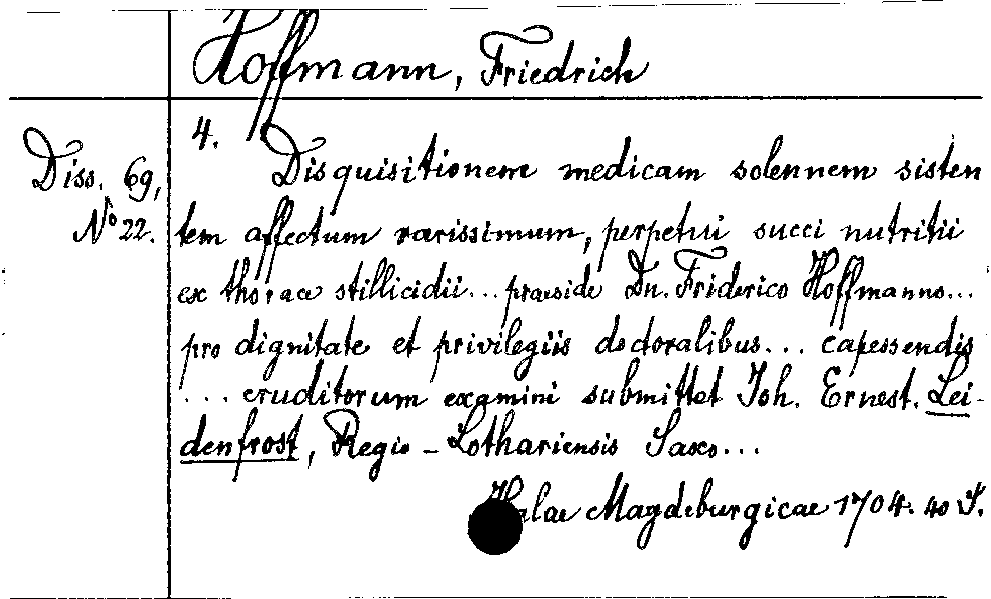 Hoffmann, Friedrich
Diss. 69,
No 22.
4.
Disquisitionem medicam solennem sisten
tem affectum rarissimum, perpetui succi nutritii
ex thorace stillicidii... praeside Dn. Friderico Hoffmanno...
pro dignitate et privilegiis doctoralibus... capessendis
... eruditorum examini submittet Joh. Ernest. Lei-
denfrost, Regio-Lothariensis Saxo...
Halae Magdeburgicae 1704. 40 S.